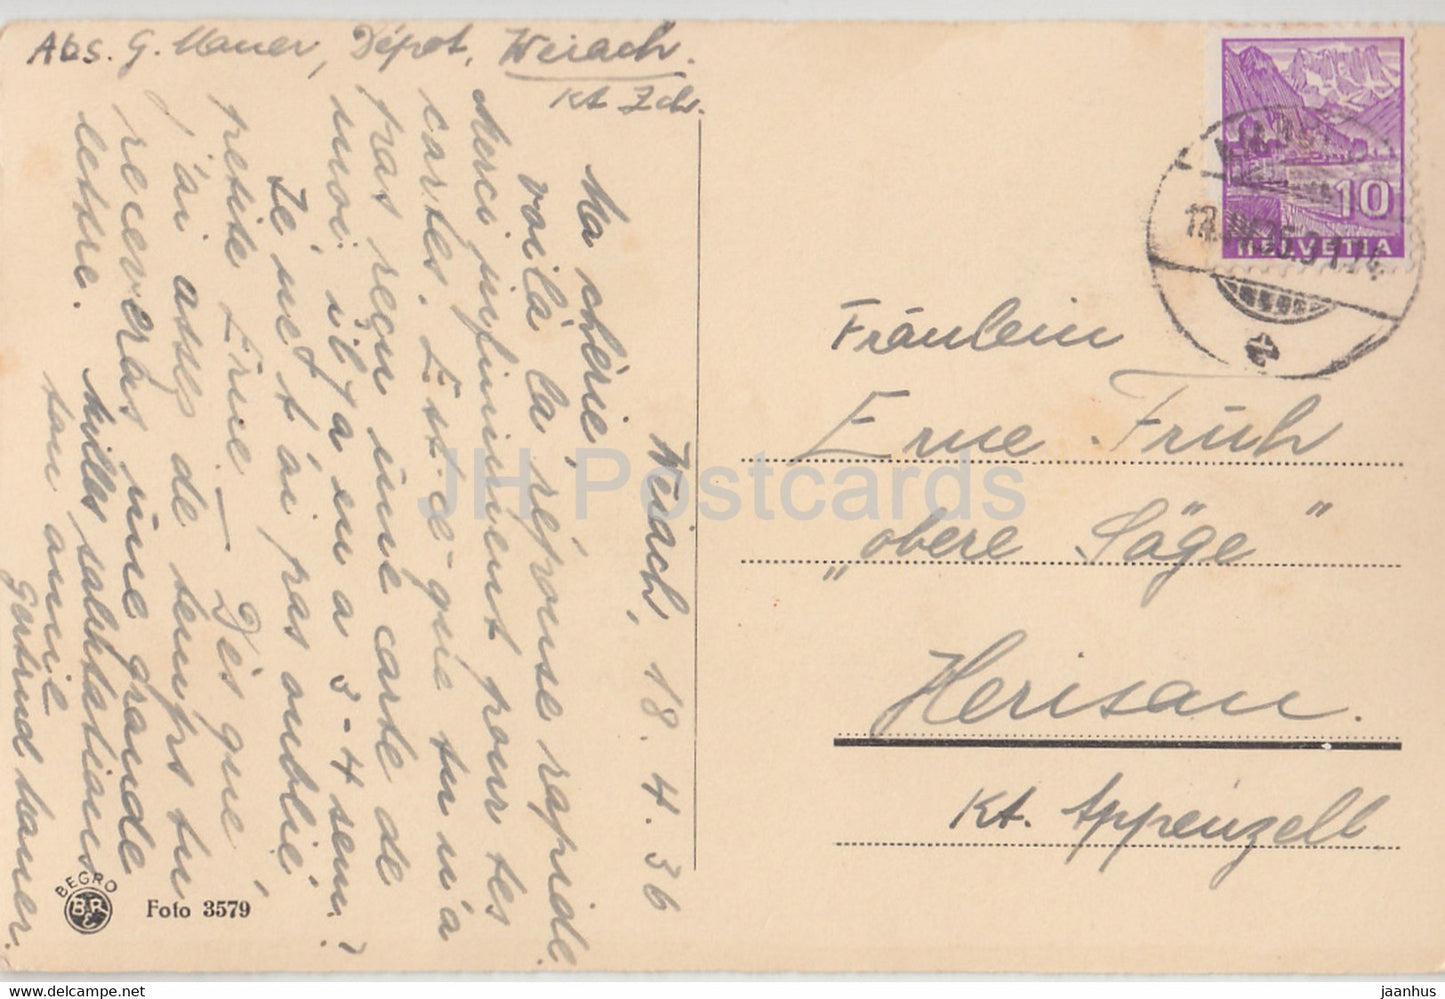 Abs. G. Mauer, Dépot, Weiach.
Kt Zch.
Weiach, 18. 4. 36
Ma chérie,
voilà la réponse rapide.
Merci infiniment pour tes
cartes. Est-ce-que tu n'a
pas reçu une carte de
moi il y a en a 3-4 sem.?
Je ne t'ai pas oublié
petite Erne. — Dès que
j'ai assez de temps tu
receveras une grande
lettre.
Milles salutations
ton amie
Gertrud Mauer.
HELVETIA
10
Fräulein
Erne Früh
„obere Säge"
Herisau.
Kt. Appenzell
BEGRO
Foto 3579
JH Postcards
www.delcampe.net
jaanhus